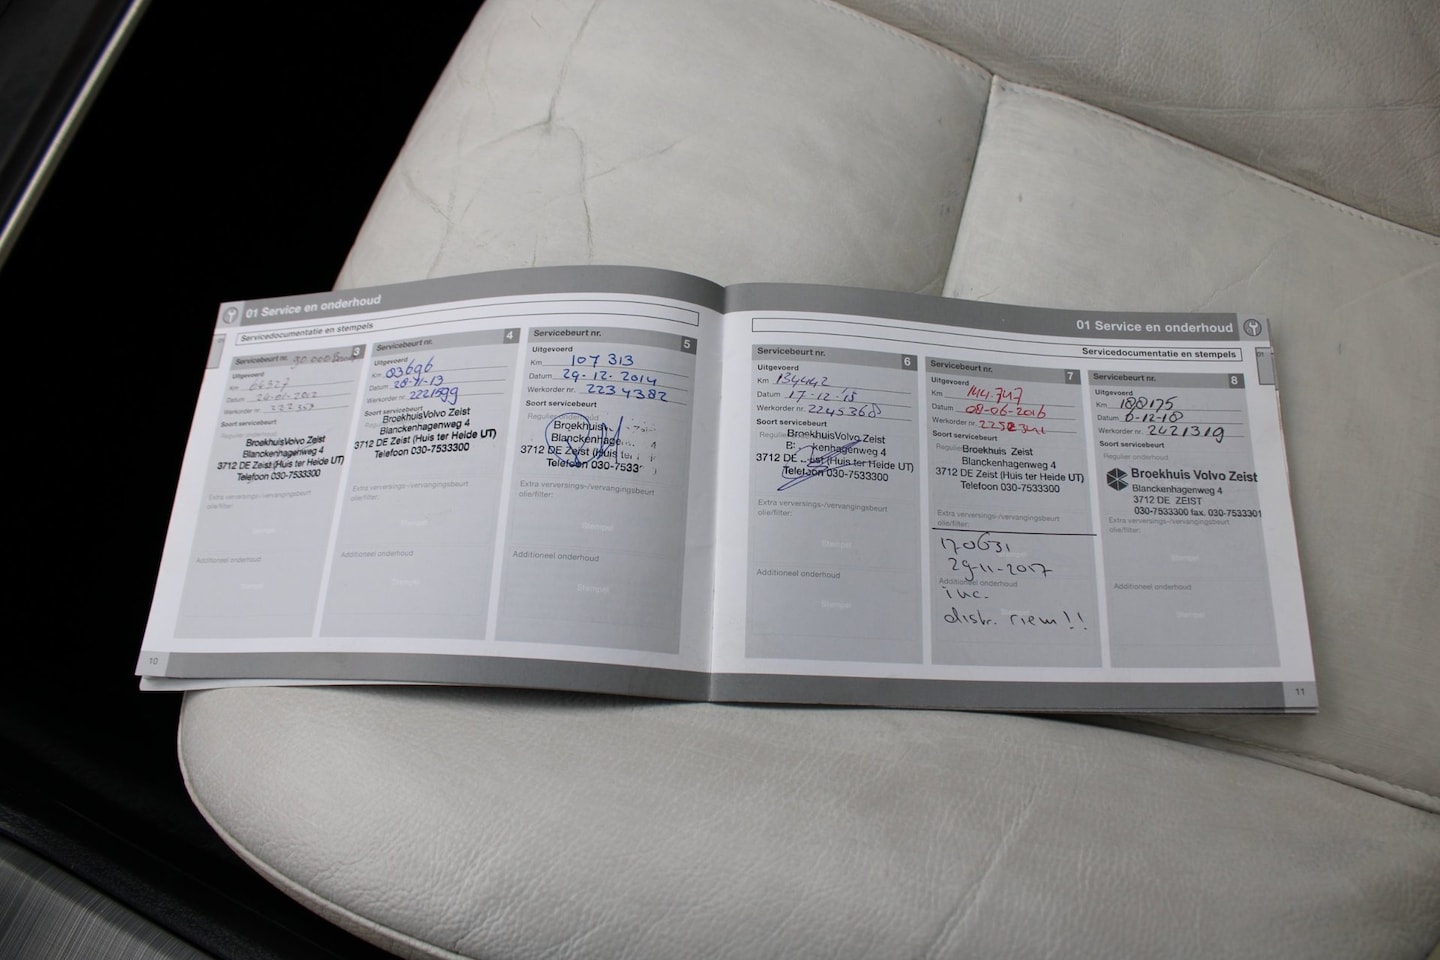 01 Service en onderhoud
Servicedocumentatie en stempels
Servicebeurt nr. 3
Uitgevoerd
Km
Datum
Werkorder nr.
Soort servicebeurt
Regulier onderhoud
BroekhuisVolvo Zeist
Blanckenhagenweg 4
3712 DE Zeist (Huis ter Heide UT)
Telefoon 030-7533300
Extra verversings-/vervangingsbeurt
olie/filter:
Additioneel onderhoud
Stempel
Servicebeurt nr. 4
Uitgevoerd
Km 83696
Datum 28-11-13
Werkorder nr. 2221599
Soort servicebeurt
BroekhuisVolvo Zeist
Blanckenhagenweg 4
3712 DE Zeist (Huis ter Heide UT)
Telefoon 030-7533300
Extra verversings-/vervangingsbeurt
olie/filter:
Stempel
Additioneel onderhoud
Stempel
Servicebeurt nr. 5
Uitgevoerd
Km 107 313
Datum 29-12-2014
Werkorder nr. 2234382
Soort servicebeurt
Regulier onderhoud
Broekhuis
Blanckenhage
3712 DE Zeist (Huis ter
Telefoon 030-7533
Extra verversings-/vervangingsbeurt
olie/filter:
Stempel
Additioneel onderhoud
Stempel
10
01 Service en onderhoud
Servicedocumentatie en stempels
01
Servicebeurt nr. 6
Uitgevoerd
Km 134442
Datum 17-12-'15
Werkorder nr. 2245368
Soort servicebeurt
BroekhuisVolvo Zeist
Blanckenhagenweg 4
3712 DE Zeist (Huis ter Heide UT)
Telefoon 030-7533300
Extra verversings-/vervangingsbeurt
olie/filter:
Stempel
Additioneel onderhoud
Stempel
Servicebeurt nr. 7
Uitgevoerd
Km 144.747
Datum 08-06-2016
Werkorder nr.
Soort servicebeurt
Broekhuis Zeist
Blanckenhagenweg 4
3712 DE Zeist (Huis ter Heide UT)
Telefoon 030-7533300
Extra verversings-/vervangingsbeurt
olie/filter:
170631
29-11-2017
Additioneel onderhoud
inc.
distr. riem!!
Servicebeurt nr. 8
Uitgevoerd
Km 188175
Datum 6-12-18
Werkorder nr. 2421319
Soort servicebeurt
Regulier onderhoud
Broekhuis Volvo Zeist
Blanckenhagenweg 4
3712 DE ZEIST
030-7533300 fax. 030-7533301
Extra verversings-/vervangingsbeurt
olie/filter:
Stempel
Additioneel onderhoud
Stempel
11